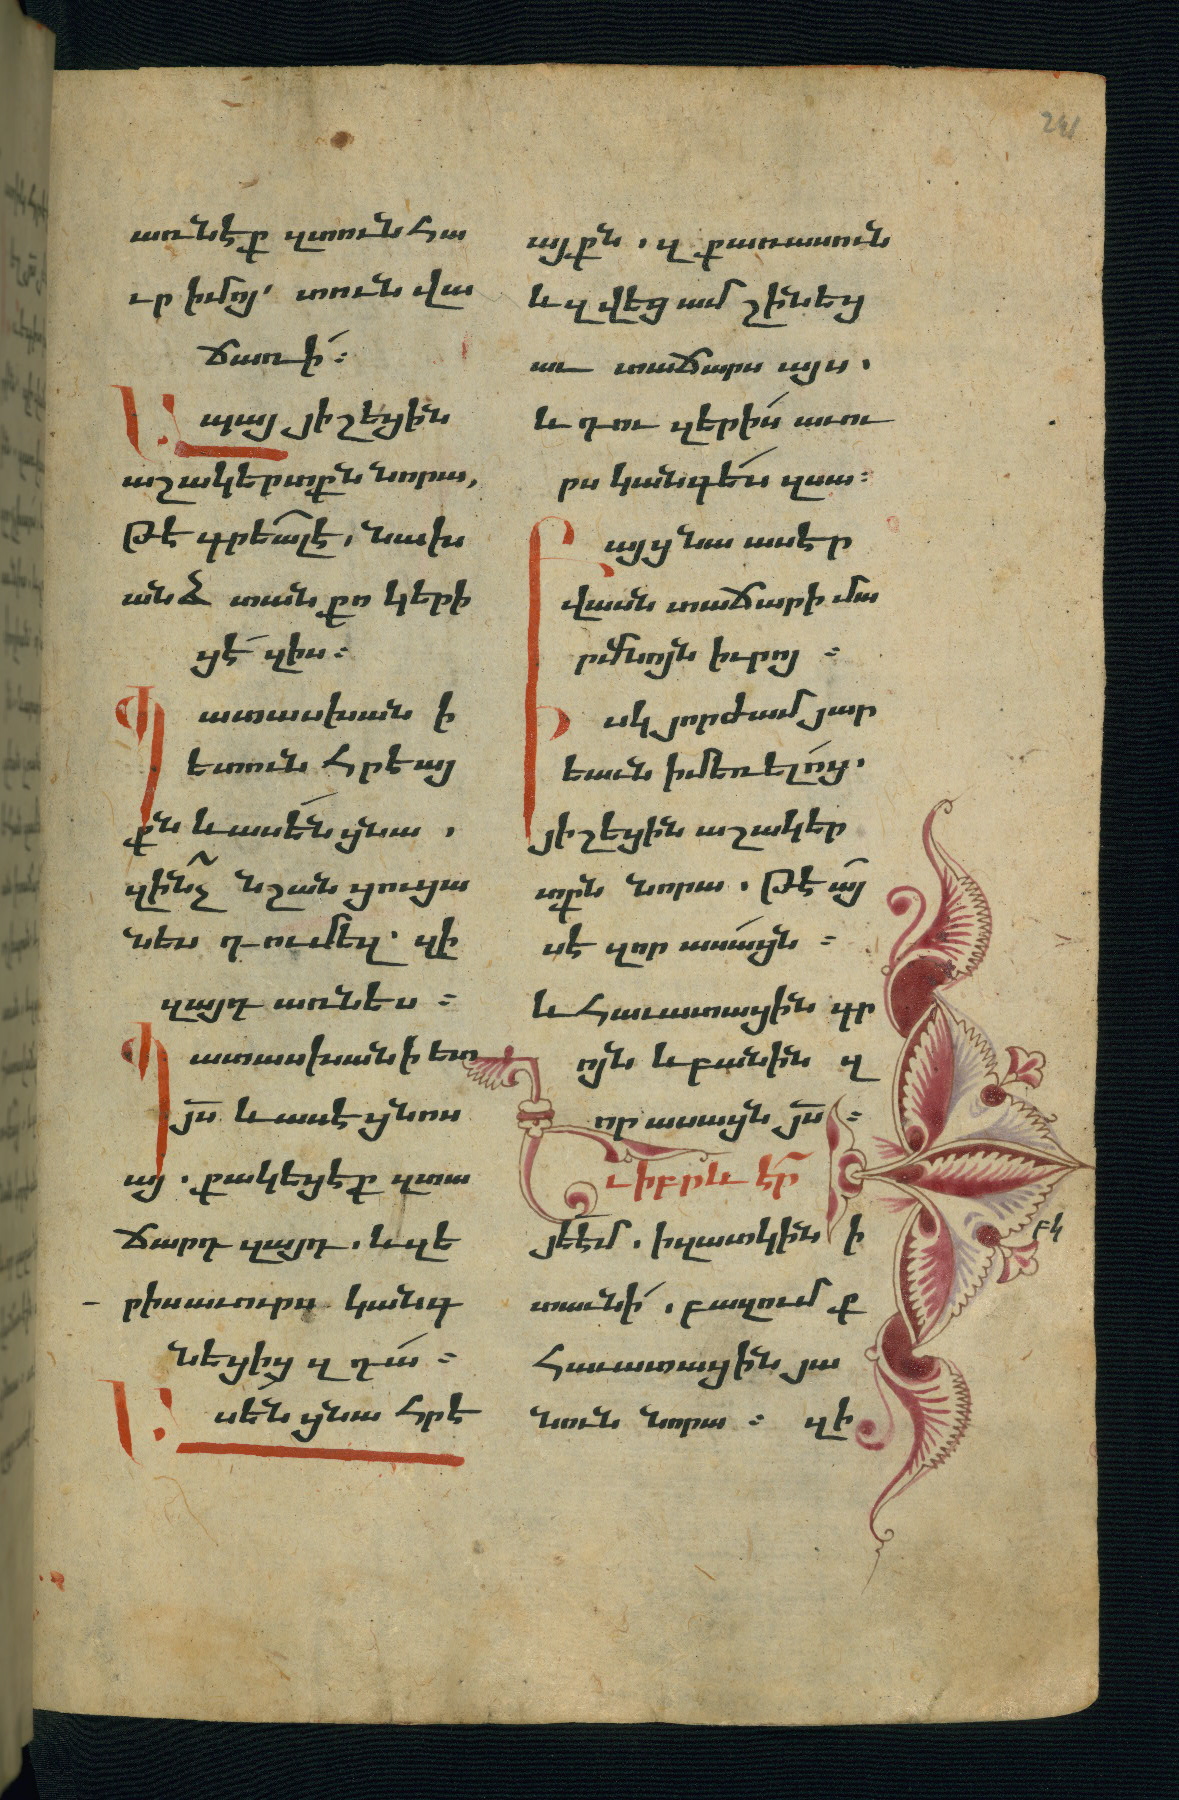 241
առնէք զտուն հա
ւր իմոյ՝ տուն վա
ճառի՛։
Ապայ յիշեցին
աշակերտքն նորա,
թէ գրեալ է, նախ
անձ տան քո կերի
ցէ՛ զիս։
Պատասխանի
ետուն հրէայ
քն և ասե՛ն ցնա ,
զի՞նչ նշան ցուցա
նես դու մեզ՝ զի
զայդ առնես ։
Պատասխանի ետ
յս և ասէ ցնոս
այ . քակեցէք զտա
ճարդ զայդ . և զե
րիս աւուրս կանգ
նեցից զդա՛ ։
Ասե՛ն ցնա հրէ
այքն . զ քառասուն
և զ վեց ամ շինեց
աւ տաճարս այս .
և դու զերի՛ս աւու
րս կանգնե՛ս զսա։
Բայց նա ասէր
վասն տաճարի մա
րմնոյն իւրոյ ։
Իսկ յորժամ յար
եաւն ի մեռելո՛ց.
յիշեցին աշակեր
տքն նորա . թէ այ
սէ զոր ասա՛ցն ։
և հաւատացին գր
ոյն և բանին զ
որ ասացն յս ։
Եւ իբրև էր
յեէմ . ի զատկին ի
տաւնի՛ . բազումք
հաւատացին յա
նուն նորա ։ զի
բկ